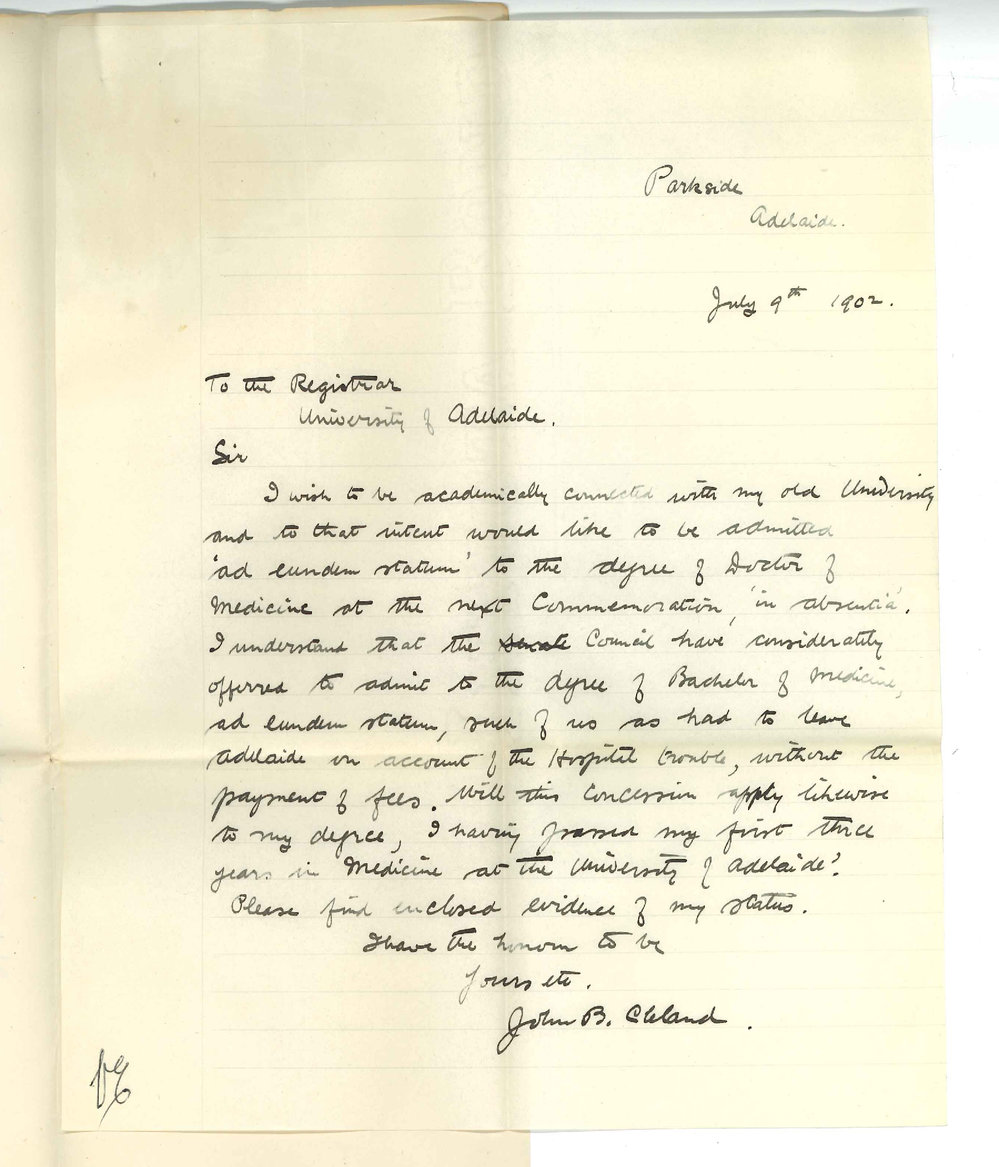 Parkside
Adelaide.
July 9th 1902.
To the Registrar
University of Adelaide.
Sir
I wish to be academically connected with my old University
and to that intent would like to be admitted
'ad eundem statum' to the degree of Doctor of
Medicine at the next Commemoration, 'in absentia'.
I understand that the Senate Council have considerately
offerred to admit to the degree of Bachelor of Medicine,
ad eundem statum, such of us as had to leave
Adelaide on account of the Hospital trouble, without the
payment of fees. Will this concession apply likewise
to my degree, I having passed my first three
years in Medicine at the University of Adelaide?
Please find enclosed evidence of my status.
I have the honour to be
Yours etc.
John B. Cleland.